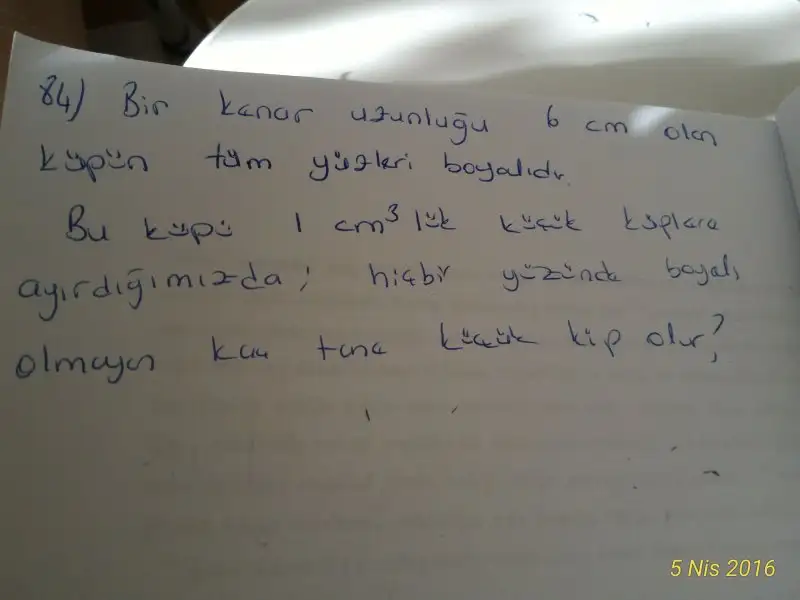 84) Bir kenar uzunluğu 6 cm olan
küpün tüm yüzleri boyalıdır.
Bu küpü 1 cm³ lük küçük küplere
ayırdığımızda; hiçbir yüzünde boyalı
olmayan kaç tane küçük küp olur?
5 Nis 2016